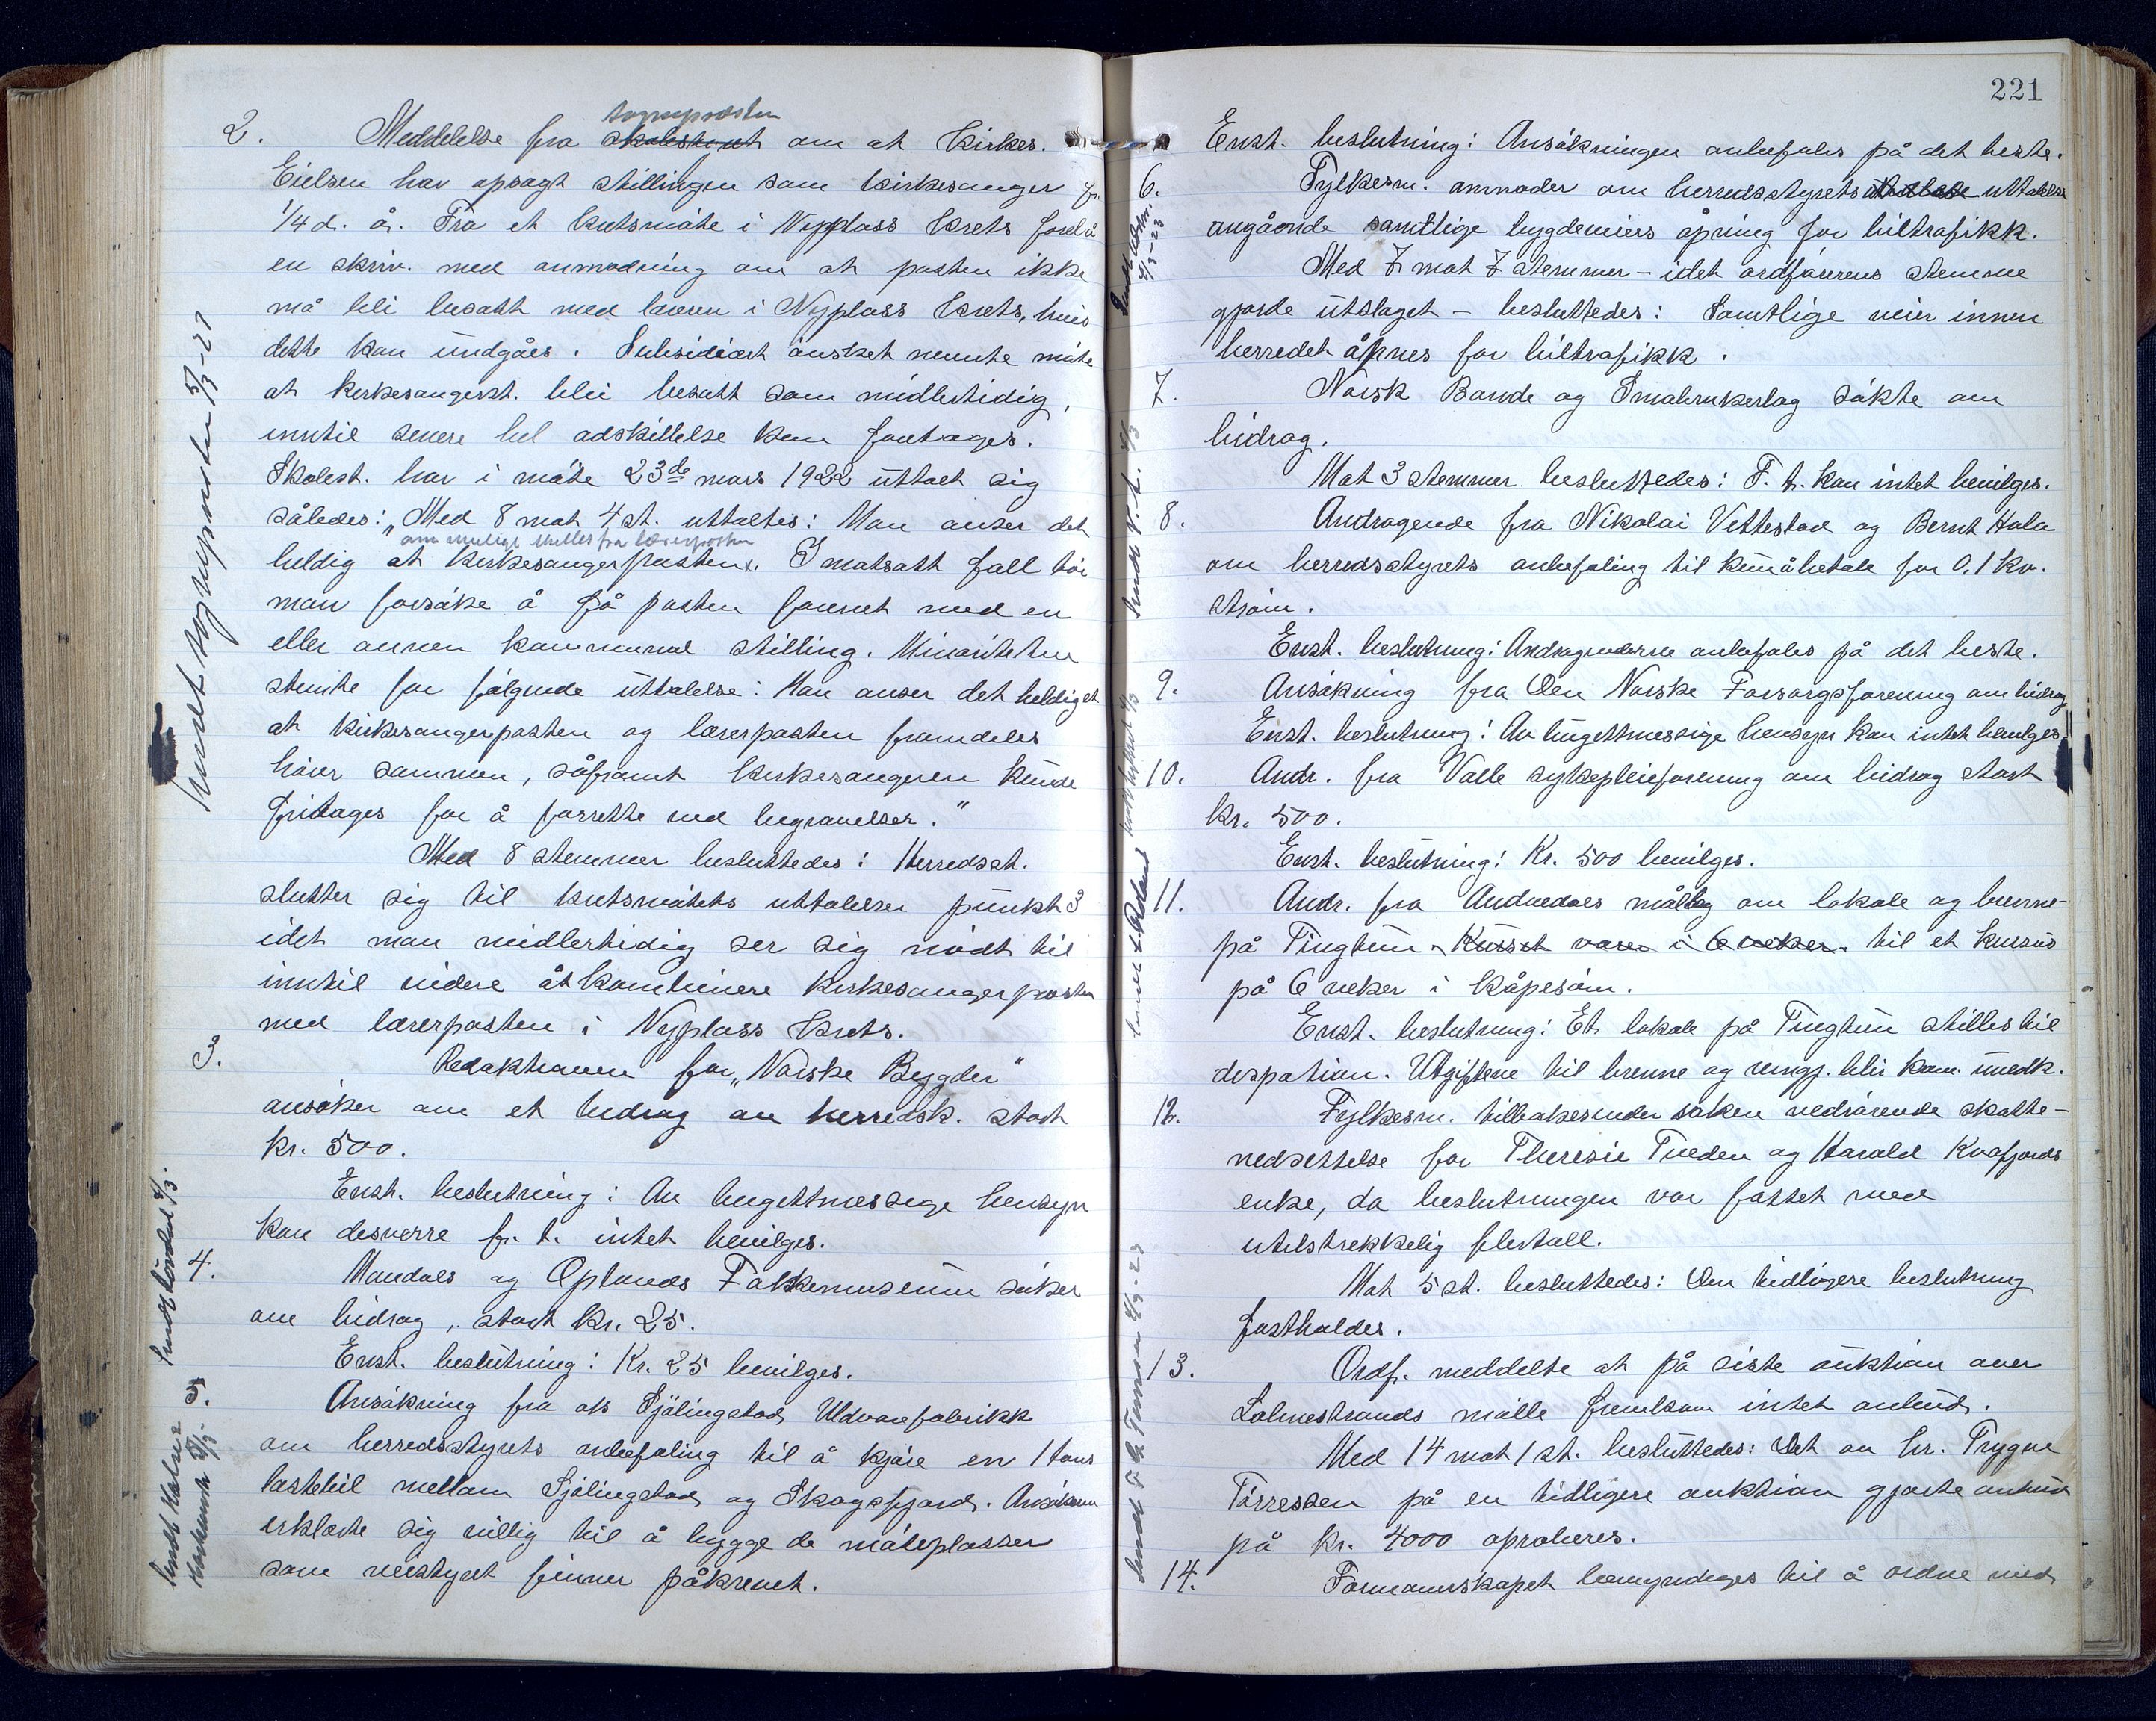 2. Meddelelse fra sogneprestn skolestyret om at Kirkes.
Eielsen har opsagt stillingen som kirkesanger fr.
1/4 d. å. Fra et kretsmøte i Nyplass krets forelå
en skriv. med anmodning om at posten ikke
må bli besatt med læreren i Nyplass krets, hvis
dette kan undgåes. Subsidiært ønsket nevnte møte
at kirkesangerst. blir besatt som midlertidig,
inntil senere hel adskillelse kan foretages.
Skolest. har i møte 23de mars 1922 uttalt sig
således: „Med 8 mot 4 st. uttaltes: Man anser det
om mulig skilles fra lærerposten
heldig at kirkesangerposten x. I motsatt fall bør
man forsøke å få posten forenet med en
eller annen kommunal stilling. Minoriteten
stemte for følgende uttalelse: Man anser det heldigst
at kirkesangerposten og lærerposten fremdeles
hører sammen, såframt kirkesangeren kunde
fritages for å forrette ved begravelser."
Med 8 stemmer besluttedes: Herredsst.
slutter sig til kretsmøtets uttalelser punkt 3
idet man midlertidig ser sig nødt til
inntil videre åt kombinere kirkesangerposten
med lærerposten i Nyplass krets.
sendt sognepresten 5/3-23
3. Redaktionen for „Norske Bygder"
ansøker om et bidrag av herredsk. stort
kr. 500.
Enst. beslutning: Av bugettmessige hensyn
kan desverre f. t. intet bevilges.
4. Mandals og Oplands Folkemuseum søker
om bidrag, stort kr. 25.
Enst. beslutning: Kr. 25 bevilges.
5. Ansøkning fra a/s Sjølingstad Uldvarefabrikk
om herredsstyrets anbefaling til å kjøre en 1 tons
lastebil mellom Sjølingstad og Skogsfjord. Ansøkeren
erklærte sig villig til å bygge de møteplasser
som veistyret finner påkrevet.
221
Enst. beslutning: Ansøkningen anbefales på det beste.
6. Fylkesm. anmoder om herredsstyrets uttalelse
angående samtlige bygdeveiers åpning for biltrafikk.
Med 7 mot 7 stemmer - idet ordførerens stemme
gjorde utslaget - besluttedes: Samtlige veier innen
herredet åpnes for biltrafikk.
7. Norsk Bonde og Småbrukerlag søkte om
bidrag.
Mot 3 stemmer besluttedes: F. t. kan intet bevilges.
8. Andragende fra Nikolai Vettestad og Bernt Hala
om herredsstyrets anbefaling til kun å betale for 0.1 kv.
strøm.
Enst. beslutning: Andragenderne anbefales på det beste.
9. Ansøkning fra Den Norske Forsorgsforening om bidrag
Enst. beslutning: Av bugettmessige hensyn kan intet bevilges.
10. Andr. fra Valle sykepleieforening om bidrag stort
kr. 500.
Enst. beslutning: Kr. 500 bevilges.
11. Andr. fra Audnedals mållag om lokale og brenne-
på Tingtun. Kurset varer i 6 veker. til et kursus
på 6 veker i kåpesøm.
Enst. beslutning: Et lokale på Tingtun stilles til
disposition. Utgiftene til brenne og rengj. blir kom. uvedk.
12. Fylkesm. tilbakesender saken vedrørende skatte-
nedsettelse for Theresie Tveden og Harald Kvafjords
enke, da beslutningen var fattet med
utilstrekkelig flertall.
Mot 5 st. besluttedes: Den tidligere beslutning
fastholdes.
13. Ordf. meddelte at på siste auktion over
Lalmestrands mølle fremkom intet anbud.
Med 14 mot 1 st. besluttedes: Det av hr. Trygve
Tørressen på en tidligere auktion gjorte anbud
på kr. 4000 aproberes.
14. Formannskapet bemyndiges til å ordne med